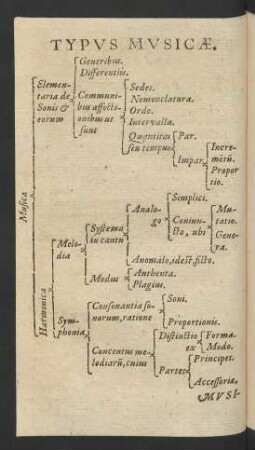 TYPVS MVSICÆ.
Musica
Elemen-
taria de
Sonis &
eorum
Generibus.
Differentiis.
Communi-
bus affecti-
onibus ut
sunt
Sedes.
Nomenclatura.
Ordo.
Intervalla.
Quantitas
seu tempus
Par.
Impar
Incre-
mētū.
Propor
tio.
Harmonica
Melo-
dia
Systema
in cantu
Analo-
go
Simplici.
Coniun-
cto, ubi
Mu-
tatio.
Gene-
ra.
Anomalo, idest, ficto.
Modus
Authenta.
Plagius.
Sym-
phonia
Consonantia so-
norum, ratione
Soni.
Proportionis.
Concentus me-
lodiarū, cuius
Distinctio
ex
Forma.
Modo.
Partes
Principes.
Accessoriæ.
MVSI-